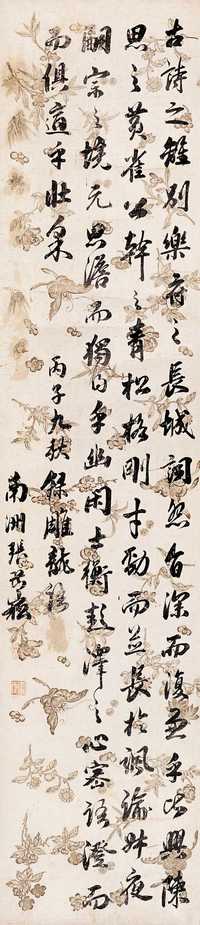 古詩之離別樂府之長城詞怨旨深而復兼乎比興陳
思之黃雀公幹之青松格剛才勁而並長於諷諭叔夜
嗣宗之境元思澹而獨得乎幽閑士衡彭澤之心密語澄而
而俱適乎壯采
丙子九秋錄雕龍語
南洲張岳崧